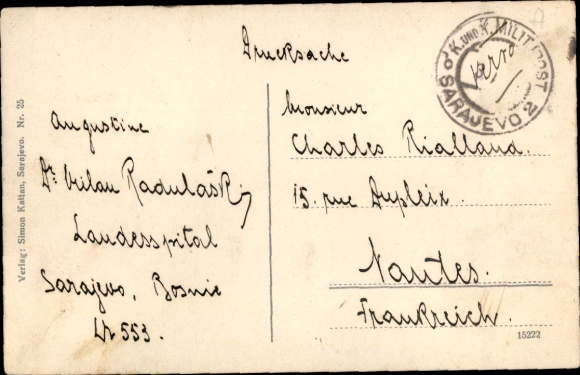 Drucksache
K. UND K. MILIT. POST
SARAJEVO 2
Verlag: Simon Kattan, Sarajevo. Nr. 25
Augustine
Dr Milan Radulašk
Landesspital
Sarajevo, Bosnie
№ 553.
Monsieur
Charles Rialland.
15. rue Dupleix.
Nantes.
Frankreich.
15222